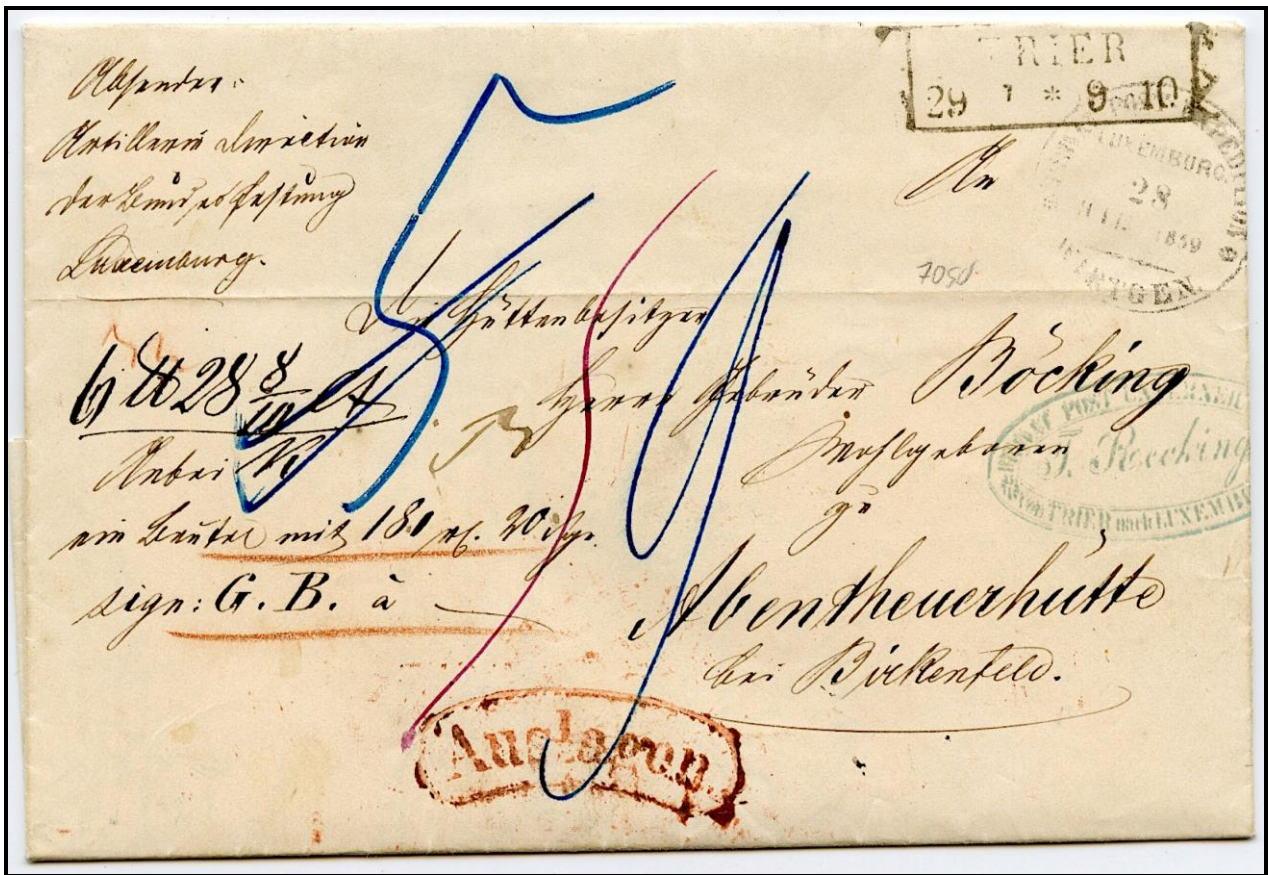 Absender:
Artillerie Direction
der Bundesfestung
Luxemburg.
TRIER
29 7 * 9-10
LUXEMBURG.
28
1859
An
7050
Die Hüttenbesitzer
Herren Gebrüder Böcking
Wohlgeboren
zu
Abentheuerhütte
bei Birkenfeld.
6 28 8/10
Anbei
ein Beutel mit 180 rt. 20 sgr.
sign: G. B. à
PRIVAT POST UNTERNEHM
J. Boecking
von TRIER nach LUXEMB
Auslagen.